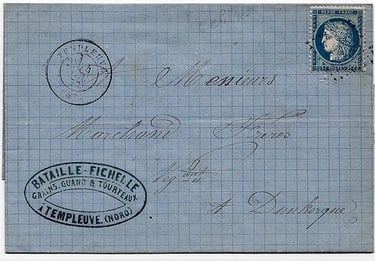 REPUB · FRANC ·
TEMPLEUVE
A Messieurs
Marchand Frères
Nég.ants
A Dunkerque
BATAILLE-FICHELLE
GRAINS, GUANO & TOURTEAUX
A TEMPLEUVE. (NORD)